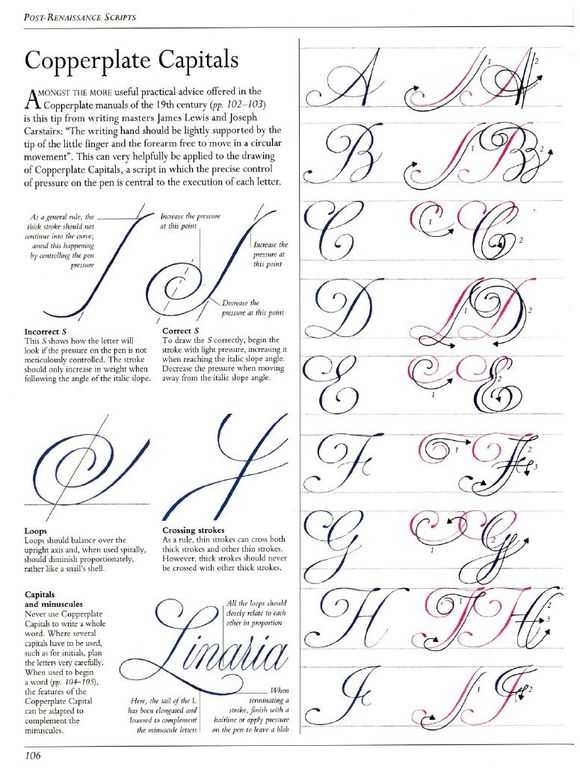 POST-RENAISSANCE SCRIPTS
Copperplate Capitals
AMONGST THE MORE useful practical advice offered in the
Copperplate manuals of the 19th century (pp. 102–103)
is this tip from writing masters James Lewis and Joseph
Carstairs: “The writing hand should be lightly supported by the
tip of the little finger and the forearm free to move in a circular
movement”. This can very helpfully be applied to the drawing
of Copperplate Capitals, a script in which the precise control
of pressure on the pen is central to the execution of each letter.
As a general rule, the
thick stroke should not
continue into the curve;
avoid this happening
by controlling the pen
pressure
Increase the pressure
at this point
Increase the
pressure at
this point
Decrease the
pressure at this point
Incorrect S
This S shows how the letter will
look if the pressure on the pen is not
meticulously controlled. The stroke
should only increase in weight when
following the angle of the italic slope.
Correct S
To draw the S correctly, begin the
stroke with light pressure, increasing it
when reaching the italic slope angle.
Decrease the pressure when moving
away from the italic slope angle.
Loops
Loops should balance over the
upright axis and, when used spirally,
should diminish proportionately,
rather like a snail's shell.
Crossing strokes
As a rule, thin strokes can cross both
thick strokes and other thin strokes.
However, thick strokes should never
be crossed with other thick strokes.
Capitals
and minuscules
Never use Copperplate
Capitals to write a whole
word. Where several
capitals have to be used,
such as for initials, plan
the letters very carefully.
When used to begin
a word (pp. 104–105),
the features of the
Copperplate Capital
can be adapted to
complement the
minuscules.
All the loops should
closely relate to each
other in proportion
Linaria
Here, the tail of the L
has been elongated and
lowered to complement
the minuscule letters
When
terminating a
stroke, finish with a
hairline or apply pressure
on the pen to leave a blob
A 1 2
B 1 2
C 1 2
D 1 2
E 1 2
F 1 2 3
G 1 2
H 1 2 3
I 1 2
106